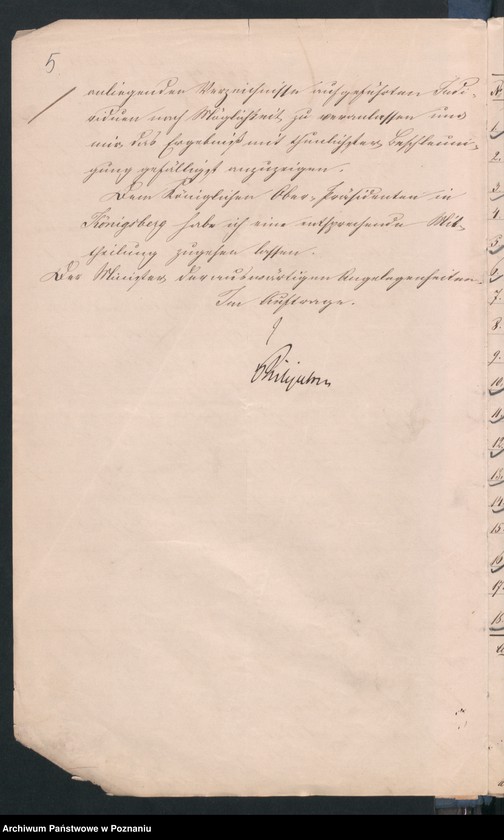 5
anliegenden Verzeichnisse aufgeführten Indi-
viduen nach Möglichkeit zu veranlassen und
mir das Ergebniß mit thunlichster Beschleuni-
gung gefälligst anzuzeigen.
Dem Königlichen Ober-Präsidenten in
Königsberg habe ich eine entsprechende Mit-
theilung zugehen lassen.
Der Minister der auswärtigen Angelegenheiten.
Im Auftrage.
Nr.
2.
3.
4.
5.
6.
7.
8.
9.
10.
11.
12.
13.
14.
15.
16.
17.
18.
Archiwum Państwowe w Poznaniu